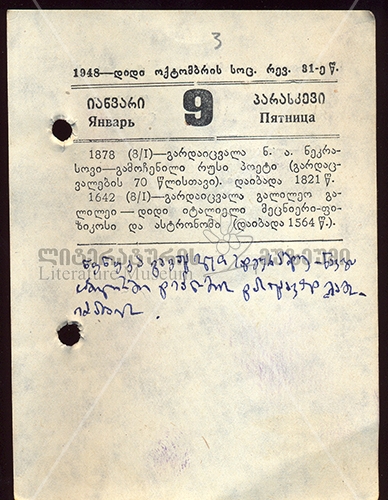 3
1948—დიდი ოქტომბრის სოც. რევ. 31-ე წ.
იანვარი 9 პარასკევი
Январь Пятница
1878 (8/I)—გარდაიცვალა ნ. ა. ნეკრა-
სოვი—გამოჩენილი რუსი პოეტი (გარდაც-
ვალების 70 წლისთავი). დაიბადა 1821 წ.
1642 (8/I)—გარდაიცვალა გალილეო გა-
ლილეი—დიდი იტალიელი მეცნიერი-ფი-
ზიკოსი და ასტრონომი (დაიბადა 1564 წ.).
ლიტერატურის მუზეუმი
Literature Museum